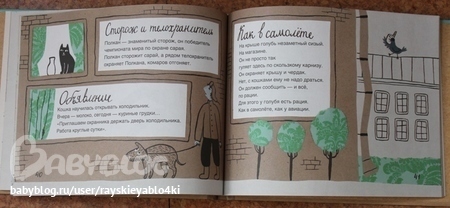 Сторож и телохранитель
Полкан — знаменитый сторож, он победитель
чемпионата мира по охране сарая.
Полкан сторожит сарай, а рядом телохранитель
охраняет Полкана, комаров отгоняет.
Объявление
Кошка научилась открывать холодильник.
Вчера — молоко, сегодня — куриные грудки...
«Приглашаем охранника держать дверь холодильника.
Работа круглые сутки».
Как в самолёте
На крыше голубь незаметный сизый.
На магазине.
Он не просто так
гуляет здесь по скользкому карнизу.
Он охраняет крышу и чердак.
Нет, с кошками ему не надо драться.
Он должен сообщить — и всё,
по рации.
Для этого у голубя есть рация.
Как в самолёте, как у авиации.
BABYBLOG
babyblog.ru/user/rayskieyablo4ki